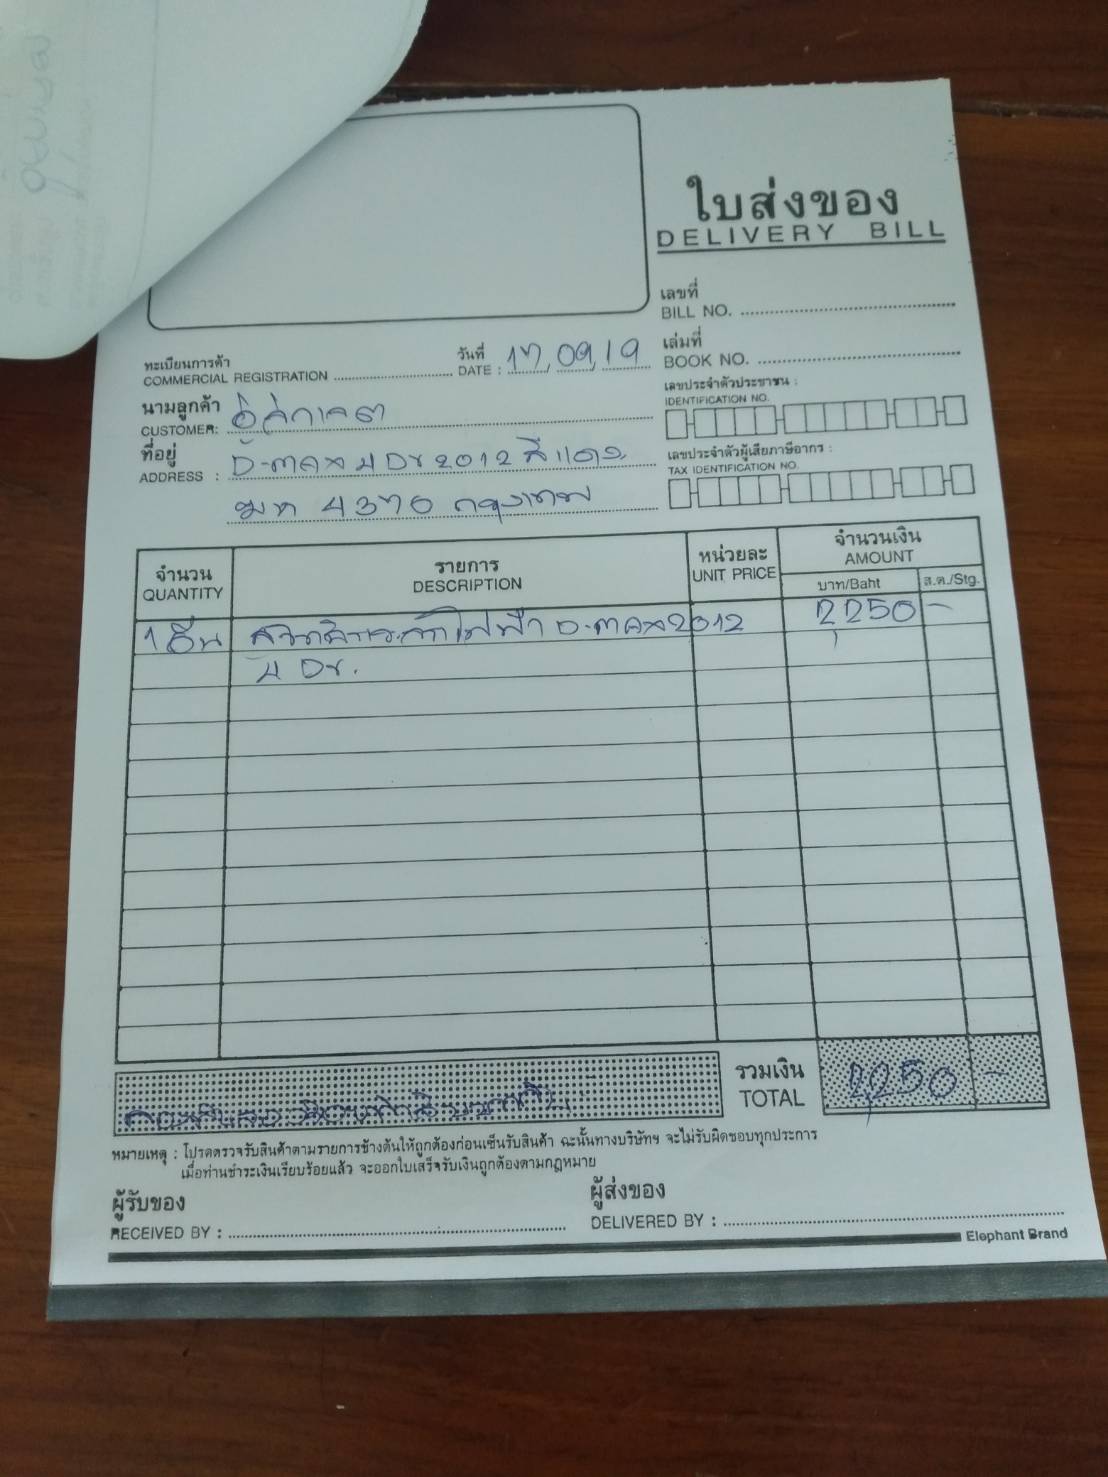 ใบส่งของ
DELIVERY BILL
เลขที่
BILL NO.
เล่มที่
BOOK NO.
ทะเบียนการค้า
COMMERCIAL REGISTRATION
วันที่
DATE : 17, 09, 19
เลขประจำตัวประชาชน :
IDENTIFICATION NO.
นามลูกค้า
CUSTOMER:
เลขประจำตัวผู้เสียภาษีอากร :
TAX IDENTIFICATION NO.
ที่อยู่
ADDRESS : 2012 สีแดง
4370 กรุงเทพ
จำนวน
QUANTITY
รายการ
DESCRIPTION
หน่วยละ
UNIT PRICE
จำนวนเงิน
AMOUNT
บาท/Baht
ส.ต./Stg.
1 อัน สวิทช์กระจกไฟฟ้า 2012 2,250 -
4 Dr.
รวมเงิน
TOTAL 2,250 -
หมายเหตุ : โปรดตรวจรับสินค้าตามรายการข้างต้นให้ถูกต้องก่อนเซ็นรับสินค้า ฉะนั้นทางบริษัทฯ จะไม่รับผิดชอบทุกประการ
เมื่อท่านชำระเงินเรียบร้อยแล้ว จะออกใบเสร็จรับเงินถูกต้องตามกฎหมาย
ผู้รับของ
RECEIVED BY :
ผู้ส่งของ
DELIVERED BY :
Elephant Brand